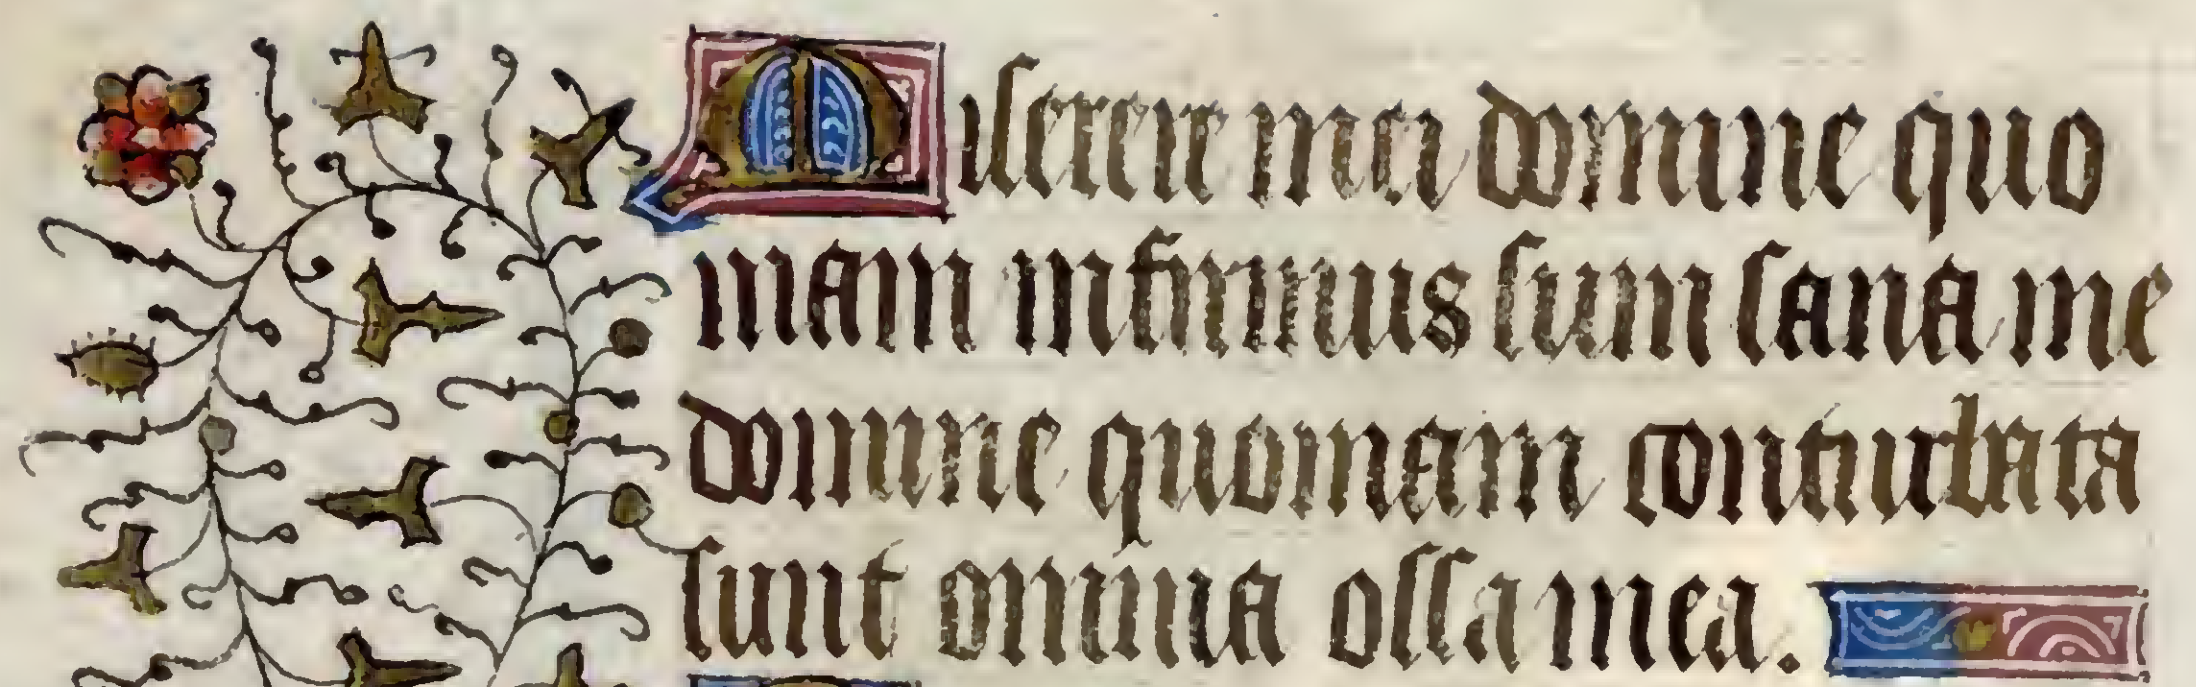 Miserere mei domine quo
niam infirmus sum sana me
domine quoniam conturbata
sunt omnia ossa mea.